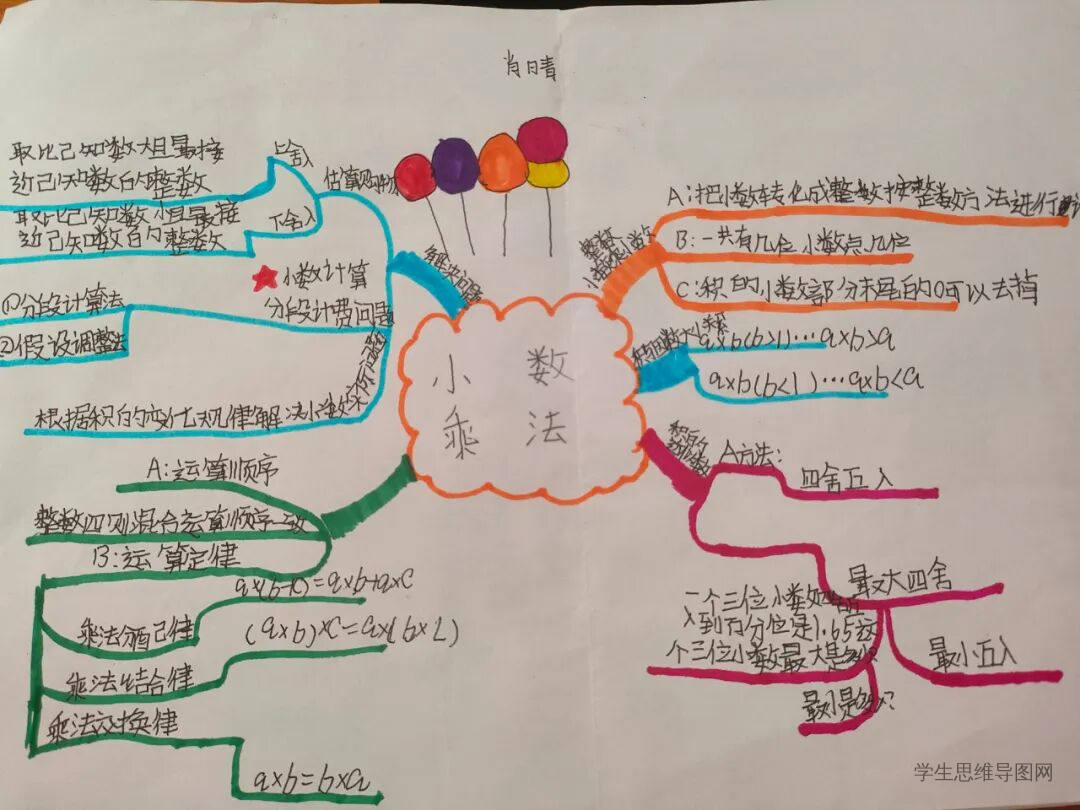 肖晴
取比已知数大且最接
近已知数的整数
上舍入
估算购物
取比已知数小且最接
近已知数的整数
下舍入
解决问题
小数计算
分段计费问题
①分段计算法
②假设调整法
根据积的变化规律解决小数
小数
乘法
整数
小数乘小数
A:把小数转化成整数按整数方法进行
B:一共有几位小数点几位
C:积的小数部分末尾的0可以去掉
积与因数大小关系
a×b(b>1)…a×b>a
a×b(b<1)…a×b<a
积的
近似数
A方法:
四舍五入
最大四舍
最小五入
一个三位小数四舍五
入到百分位是1.65这
个三位小数最大是多少
最小是多少?
A:运算顺序
整数四则混合运算顺序一致
B:运算定律
乘法分配律
a×(b+c)=a×b+a×c
乘法结合律
(a×b)×c=a×(b×c)
乘法交换律
a×b=b×a
学生思维导图网